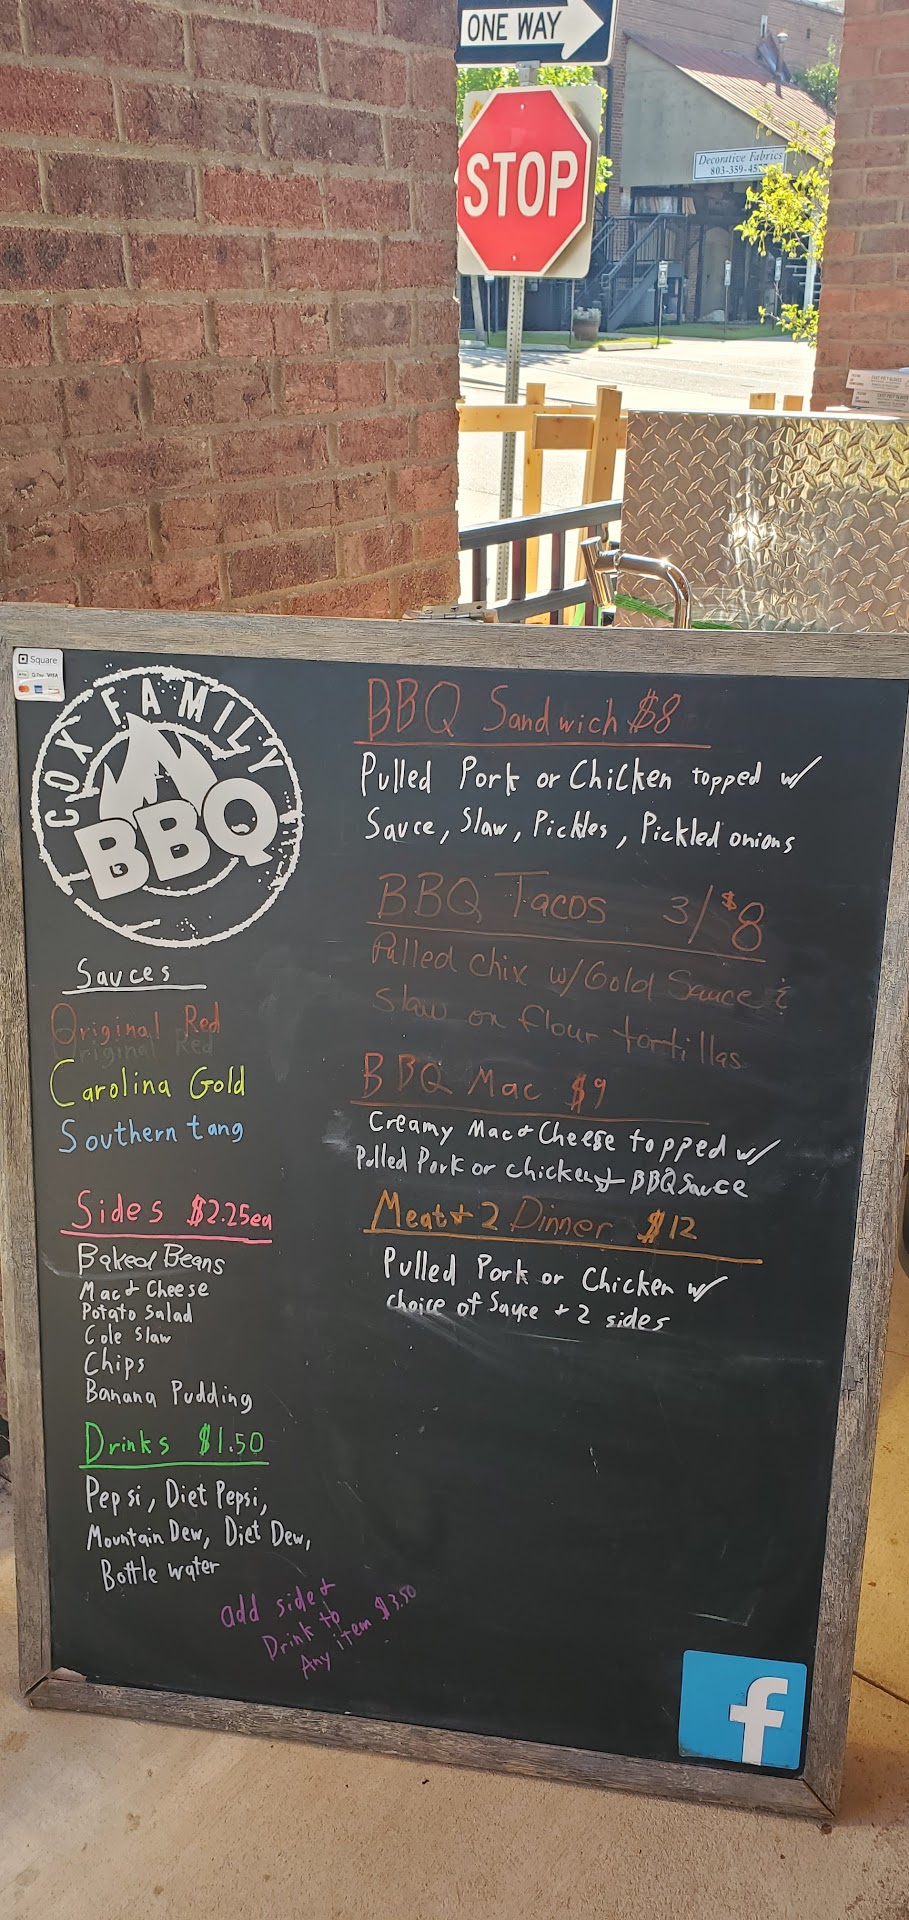 ONE WAY
STOP
Decorative Fabrics
Square
VISA
COX FAMILY
BBQ
Sauces
Original Red
Original Red
Carolina Gold
Southern tang
Sides $2.25ea
Baked Beans
Mac & Cheese
Potato Salad
Cole Slaw
Chips
Banana Pudding
Drinks $1.50
Pepsi, Diet Pepsi,
Mountain Dew, Diet Dew,
Bottle water
add side &
Drink to
Any item $3.50
BBQ Sandwich $8
Pulled Pork or Chicken topped w/
Sauce, Slaw, Pickles, Pickled onions
BBQ Tacos 3/$8
Pulled chix w/Gold Sauce &
Slaw on flour tortillas
BBQ Mac $9
Creamy Mac & Cheese topped w/
Pulled Pork or chicken & BBQ Sauce
Meat + 2 Dinner $12
Pulled Pork or Chicken w/
choice of Sauce + 2 sides
f